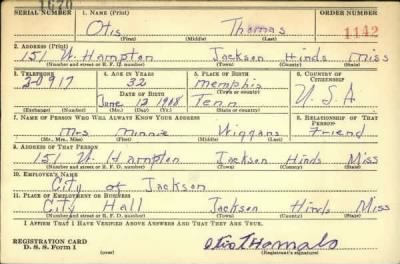 SERIAL NUMBER 1. NAME (Print) ORDER NUMBER
1670 Otis Thomas 1142
(First) (Middle) (Last)
2. ADDRESS (Print)
151 W. Hampton Jackson Hinds Miss
(Number and street or R. F. D. number) (Town) (County) (State)
3. TELEPHONE 4. AGE IN YEARS 5. PLACE OF BIRTH 6. COUNTRY OF CITIZENSHIP
20917 32 Memphis
DATE OF BIRTH (Town or county)
June 12 1908 Tenn U.S.A
(Exchange) (Number) (Mo.) (Day) (Yr.) (State or country)
7. NAME OF PERSON WHO WILL ALWAYS KNOW YOUR ADDRESS 8. RELATIONSHIP OF THAT PERSON
Mrs Minnie Wiggans Friend
(Mr., Mrs., Miss) (First) (Middle) (Last)
9. ADDRESS OF THAT PERSON
151 W. Hampton Jackson Hinds Miss
(Number and street or R. F. D. number) (Town) (County) (State)
10. EMPLOYER'S NAME
City of Jackson
11. PLACE OF EMPLOYMENT OR BUSINESS
City Hall Jackson Hinds Miss
(Number and street or R. F. D. number) (Town) (County) (State)
I AFFIRM THAT I HAVE VERIFIED ABOVE ANSWERS AND THAT THEY ARE TRUE.
REGISTRATION CARD
D. S. S. Form 1 (over) Otis Thomas
(Registrant's signature)